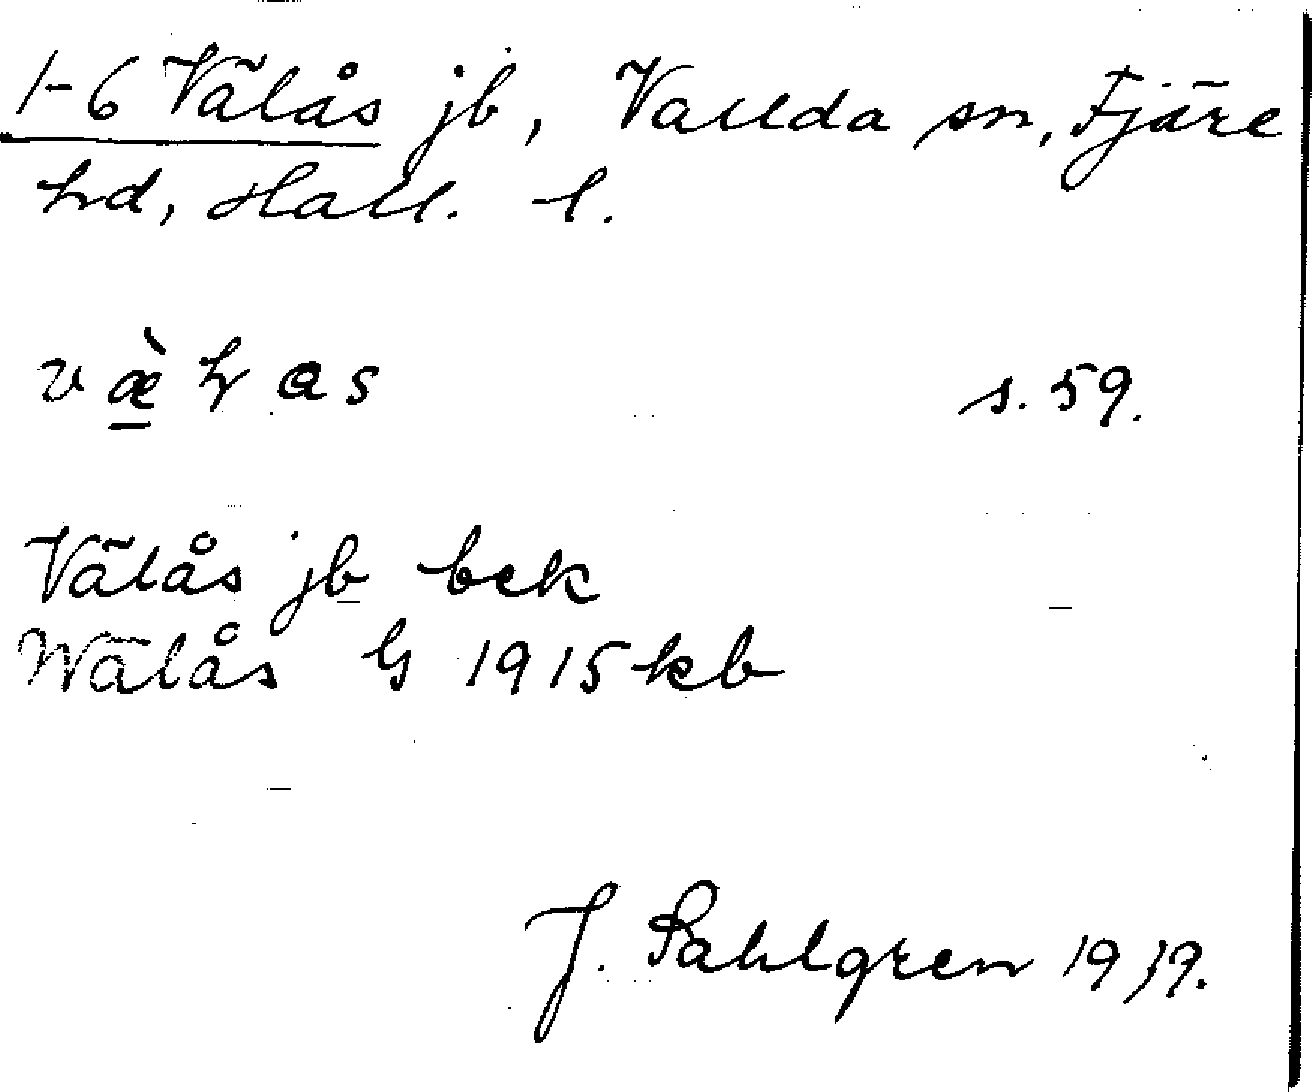 1-6 Välås jb, Vallda sn, Fjäre
hd, Hall. l.
s. 59.
Välås jb bek
Wälås G 1915 kb
J. Sahlgren 1919.